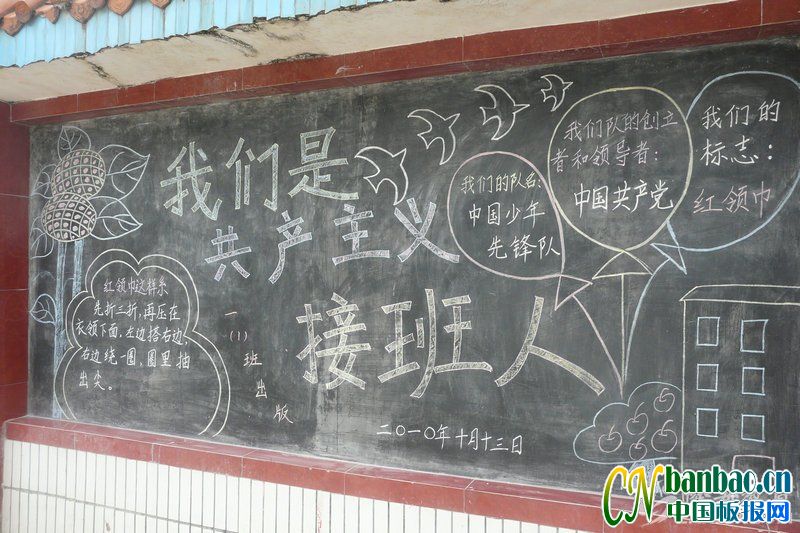 我们是
共产主义
接班人
红领巾这样系
先折三折,再压在
衣领下面,左边搭右边,
右边绕一圈,圈里抽
出尖。
一
(1)
班
出
版
二〇一〇年十月十三日
我们的队名:
中国少年
先锋队
我们队的创立
者和领导者:
中国共产党
我们的
标志:
红领巾
CN banbao.cn
中国板报网